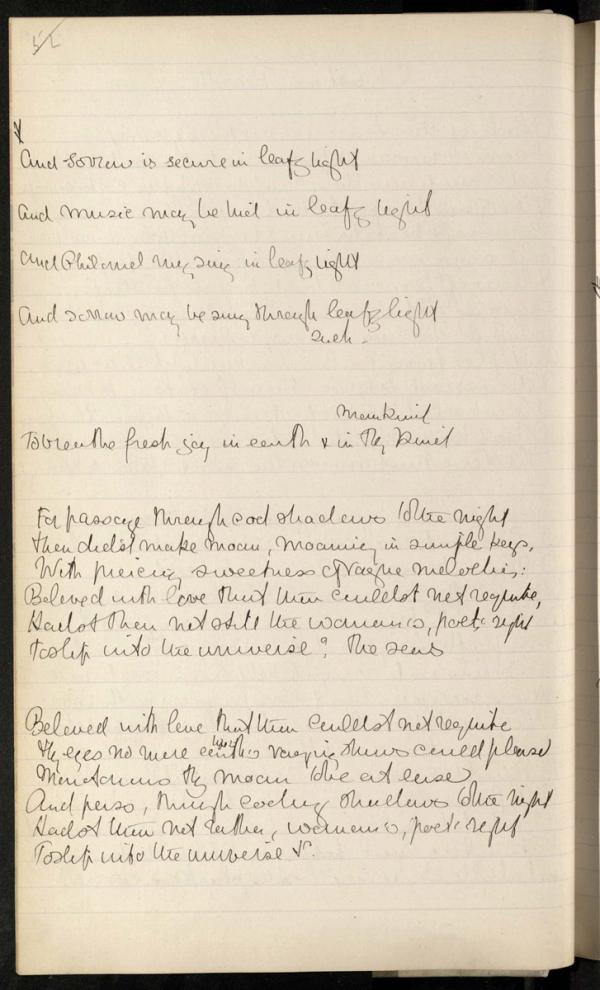 52
X
And sorrow is secure in leafy light
And music may be hid in leafy light
And Philomel may sing in leafy light
And sorrow may be sung through leafy light
such.
Mankind
To breathe fresh joy in earth & in thy kind
For passage through cool shadows to the night
Thou didst make moan, moaning in simple keys,
With piercing sweetness of vague melodies:
Beloved with love that thou couldst not requite,
Hadst thou not still the woman's, poet's right
To slip into the universe? The seas
Beloved with love that thou couldst not requite
thy eyes no more earth's varying shows could please
Monotonous thy moan to be at ease
And pass, through cooling shadows to the night
Hadst thou not rather, woman's, poet's right
To slip into the universe &.